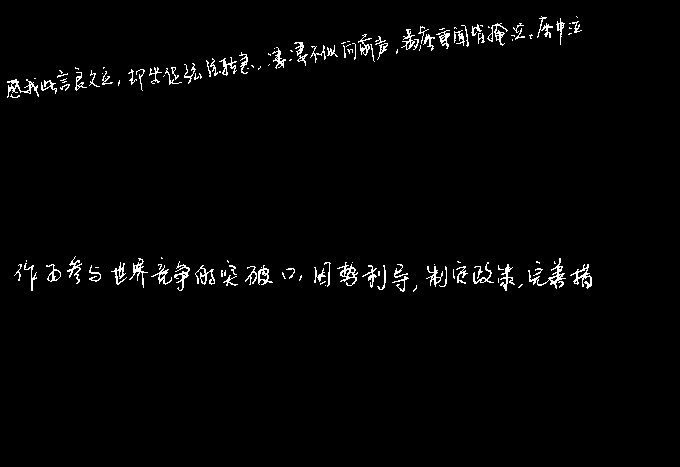 感我此言良久立，却坐促弦弦转急。凄凄不似向前声，满座重闻皆掩泣。座中泣
作为参与世界竞争的突破口，因势利导，制定政策，完善措